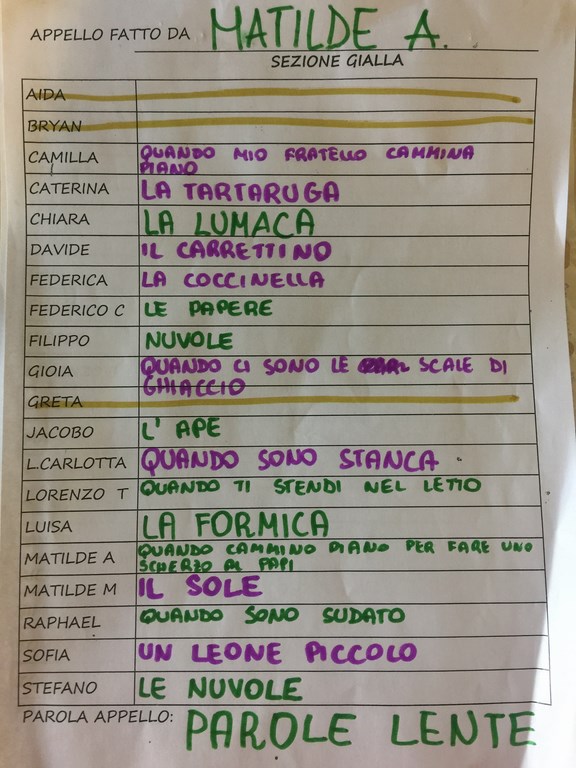 APPELLO FATTO DA MATILDE A.
SEZIONE GIALLA
AIDA
BRYAN
CAMILLA QUANDO MIO FRATELLO CAMMINA
PIANO
CATERINA LA TARTARUGA
CHIARA LA LUMACA
DAVIDE IL CARRETTINO
FEDERICA LA COCCINELLA
FEDERICO C LE PAPERE
FILIPPO NUVOLE
GIOIA QUANDO CI SONO LE SCALE DI
GHIACCIO
GRETA
JACOBO L' APE
L.CARLOTTA QUANDO SONO STANCA
LORENZO T QUANDO TI STENDI NEL LETTO
LUISA LA FORMICA
MATILDE A QUANDO CAMMINO PIANO PER FARE UNO
SCHERZO AL PAPI
MATILDE M IL SOLE
RAPHAEL QUANDO SONO SUDATO
SOFIA UN LEONE PICCOLO
STEFANO LE NUVOLE
PAROLA APPELLO: PAROLE LENTE